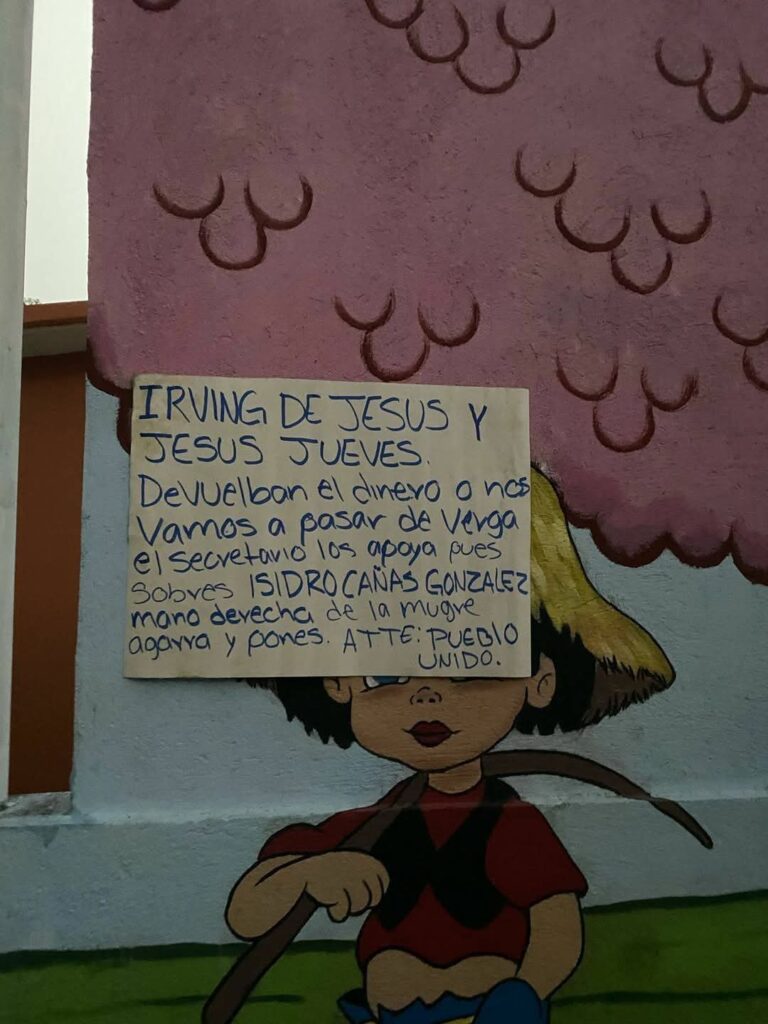 IRVING DE JESUS Y
JESUS JUEVES.
Devuelban el dinero o nos
Vamos a pasar de verga
el secretario los apoya pues
sobres ISIDRO CAÑAS GONZALEZ
mano derecha de la mugre
agarra y pones. ATTE: PUEBLO
UNIDO.